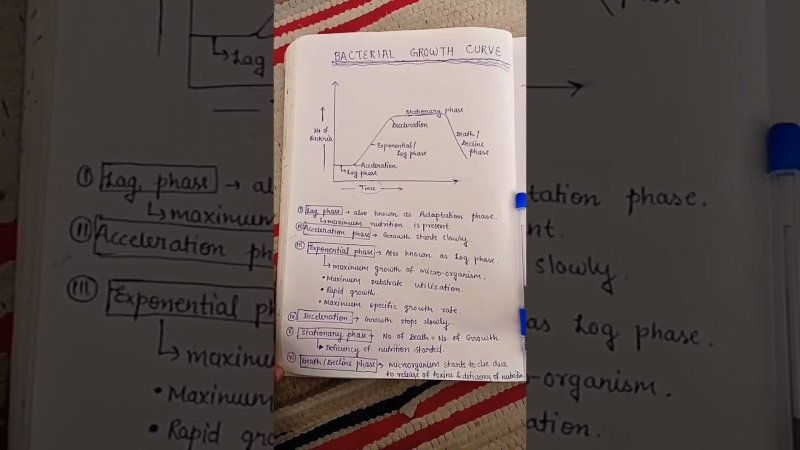 BACTERIAL GROWTH CURVE
No of
Bacteria
Stationary phase
Deceleration
Exponential/
Log phase
Acceleration
Lag phase
Death/
Decline
phase
Time
(i) Lag phase → also known as Adaptation phase.
↳ maximum nutrition is present
(ii) Acceleration phase → Growth starts slowly
(iii) Exponential phase → Also known as Log phase.
↳ maximum growth of micro-organism.
• Maximum substrate utilization.
• Rapid growth.
• Maximum specific growth rate.
(iv) Deceleration. → Growth stops slowly.
(v) Stationary phase → No of Death = No of Growth
↳ Deficiency of nutrition started.
(vi) Death/Decline phase → Microorganism starts to die due
to release of toxins & deficiency of nutrition
Lag
(i) Lag phase → also
↳ maximum
(ii) Acceleration ph
(iii) Exponential ph
↳ maxim
• Maximum
• Rapid gro
phase
tation phase.
nt.
slowly.
as Log phase.
-organism.
ation.